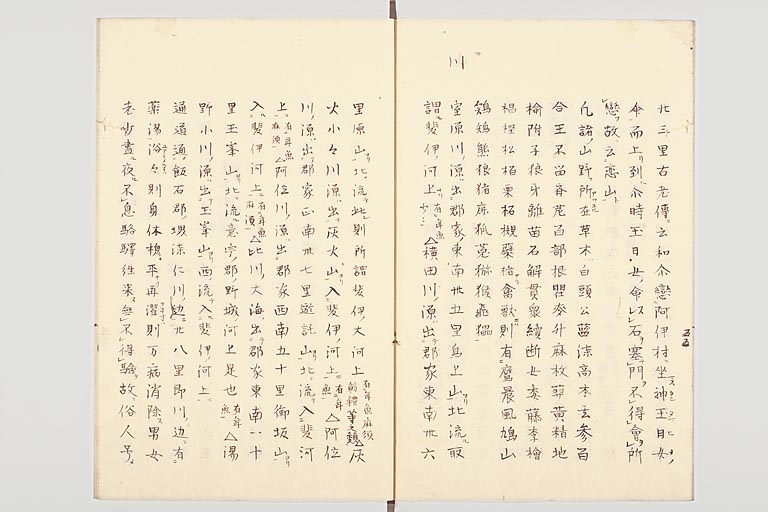 五五
北三里古老傳云和尒戀阿伊村坐神玉日女
命而上到尒時玉日女命以石塞門不得會所
戀故云戀山
凡諸山野所在草木白頭公藍漆高本玄參百
合王不留香薺苨百部根瞿麥升麻枚葜黄精地
榆附子狼牙離苗石斛貫衆續断女委藤李檜
椙樫松栢栗柘槻蘗楮禽獣則有鷹晨風鳩山
鶏鴙熊狼猪麻狐菟猕猴飛猵
川
室原川源出郡家東南卅五里鳥上山北流所
謂斐伊河上有年魚少々△横田川源出郡家東南卅六
里原山北流此則所謂斐伊大河上有年魚麻須魴鱧等之類△灰
火小々川源出灰火山入斐伊河上有年魚△阿位
川源出郡家正南卅七里遊託山北流入斐河
上有年魚麻須△阿位川源出郡家西南五十里御坂山
入斐伊河上有年魚麻須△比川大海出郡家東南一十
里玉峯山北流意宇郡野城河上是也有年魚△湯
野小川源出玉峯山西流入斐伊河上
通道通飯石郡堺漆仁川邊廿八里即川邊有
藥湯浴々則身体穆平再濯則万病消除男女
老少晝夜不息駱驛往來無不得驗故俗人号